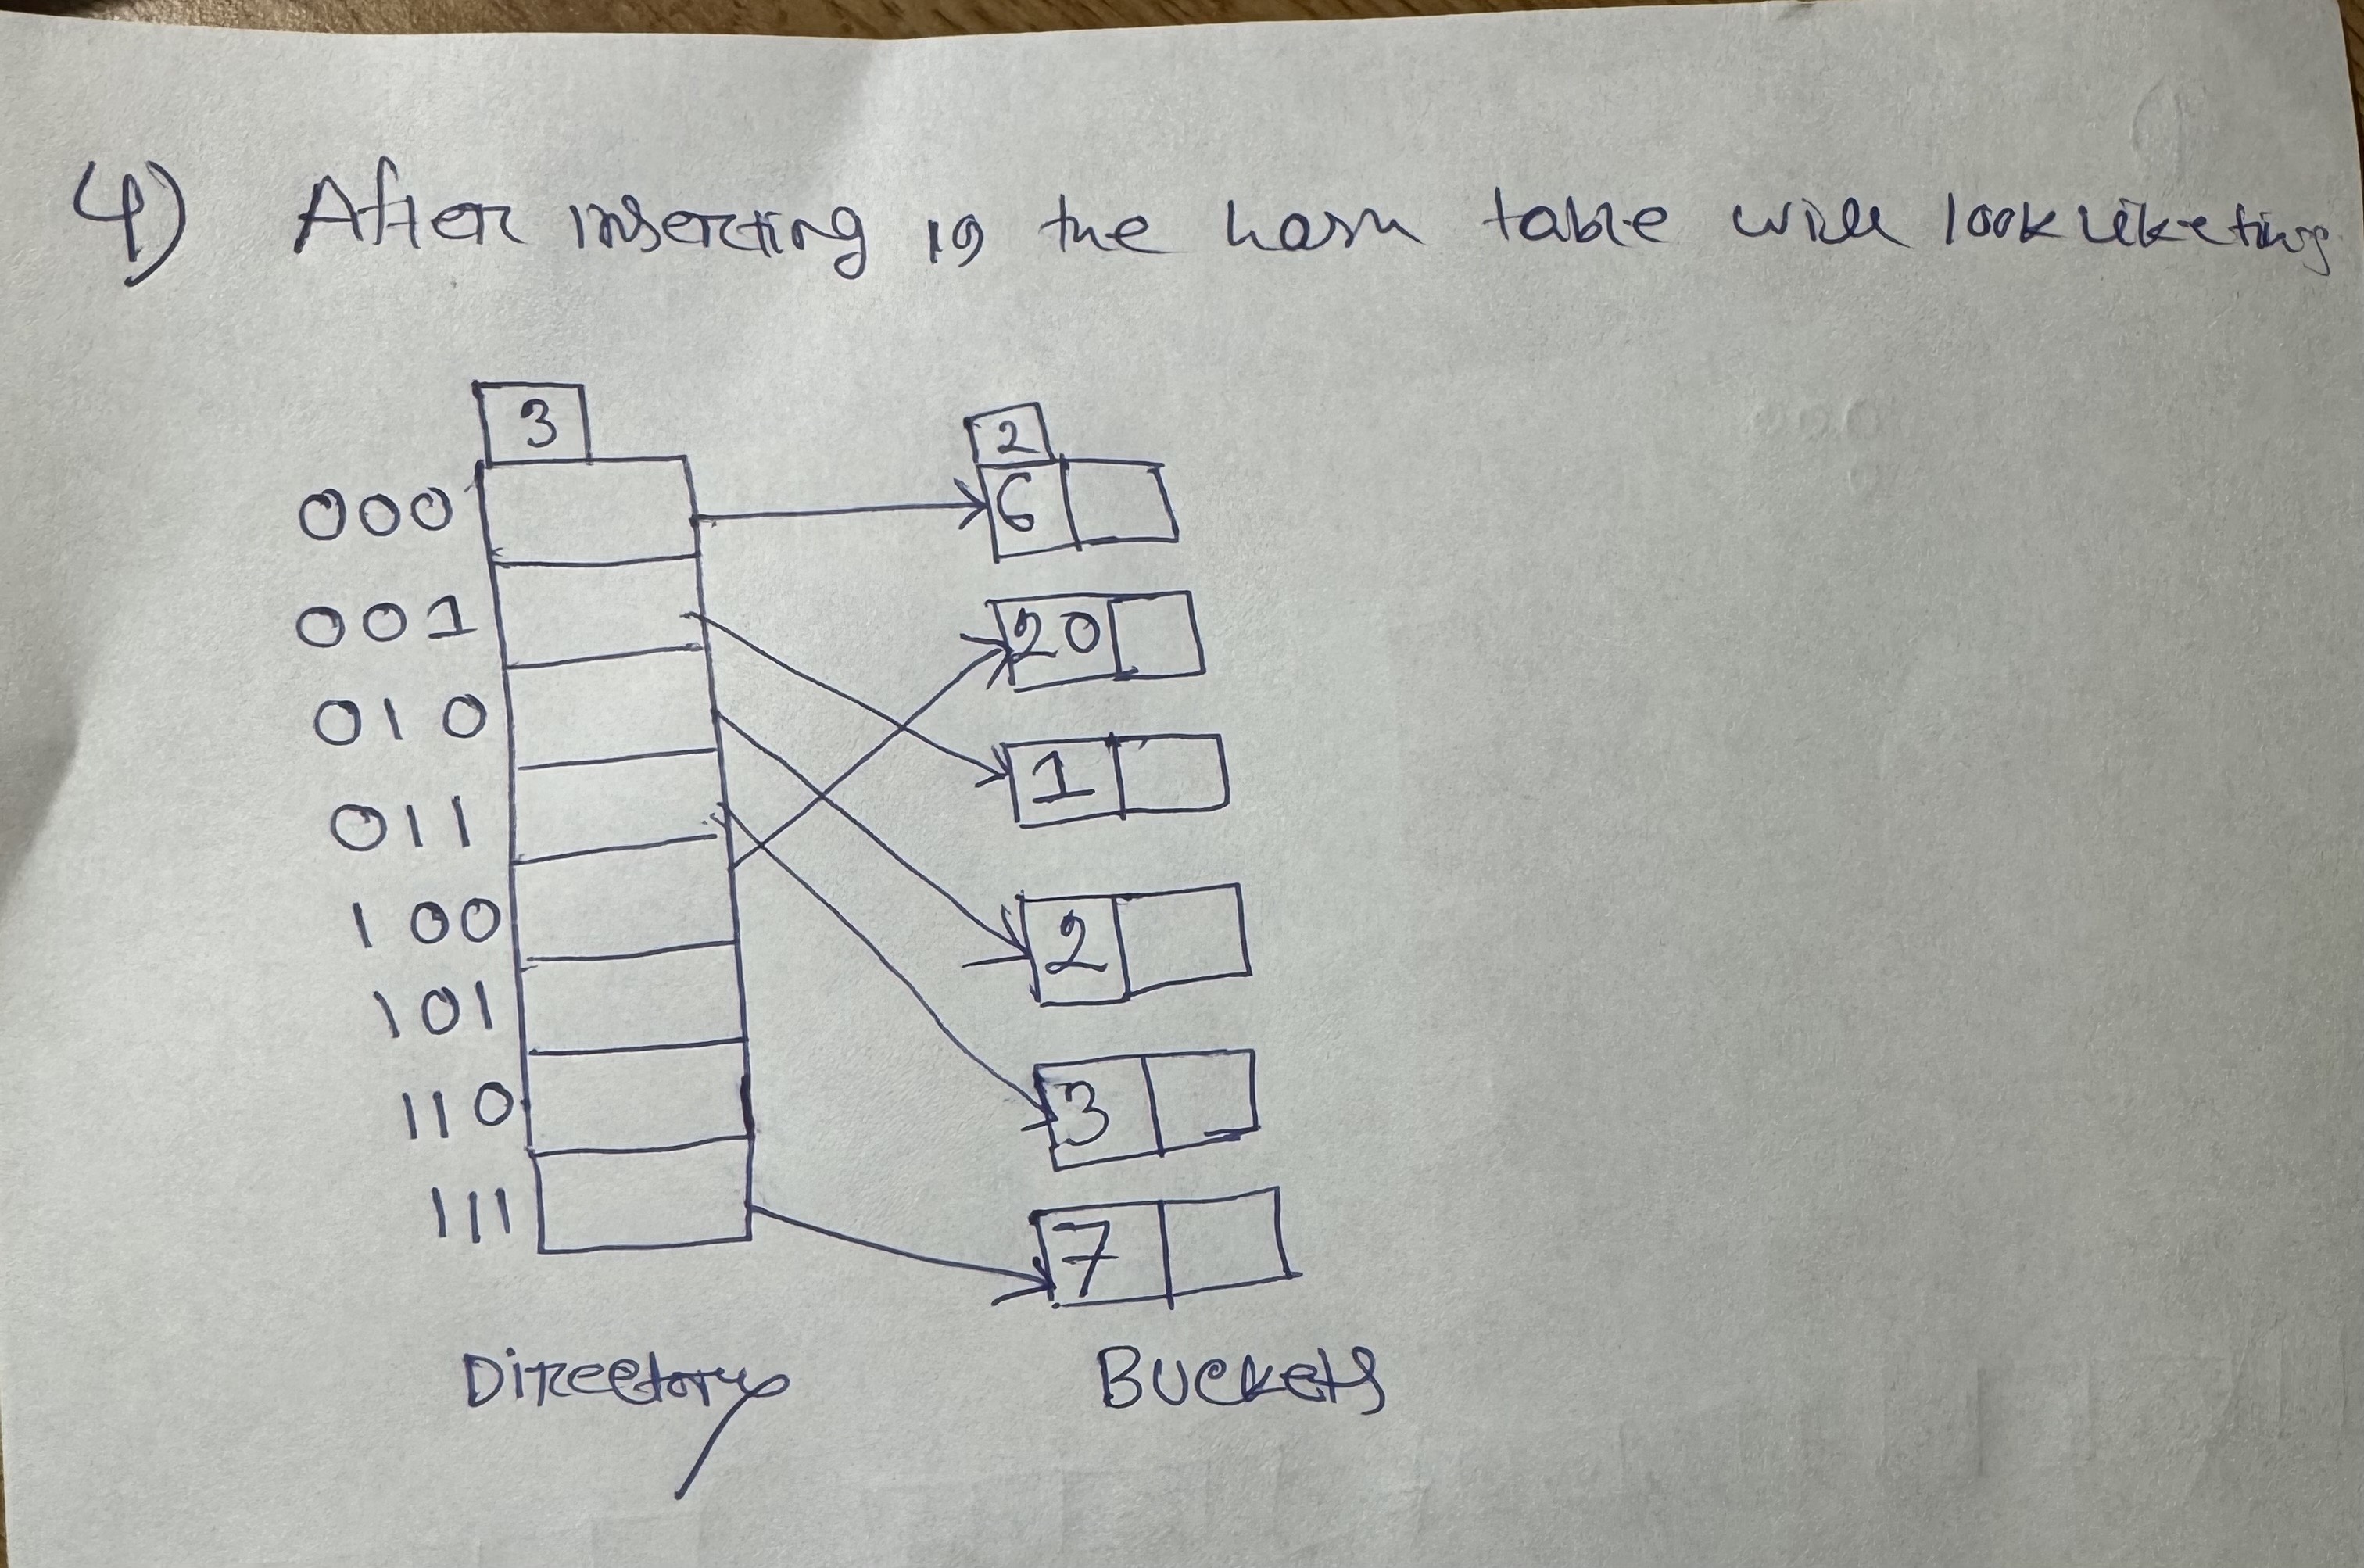 4) After inserting 19 the hash table will look like this
3
2
000
6
001
20
010
1
011
100
2
101
110
3
111
7
Directory
Buckets